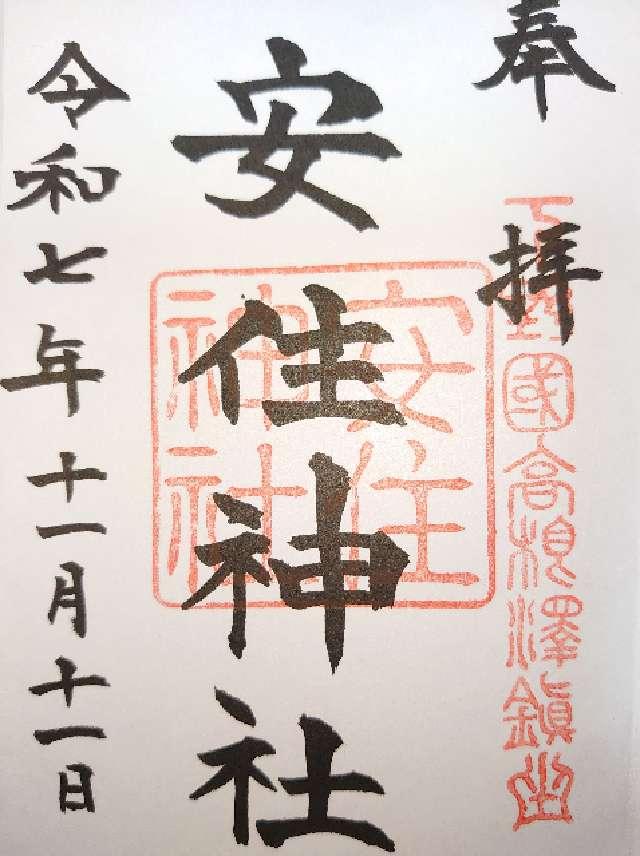 奉拝
下野國高根澤鎮座
安住神社
安住
神社
令和七年十一月十一日